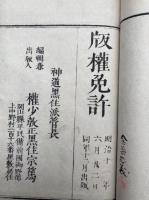 版權免許
明治十 年
六月 二日
同年十二月出版
神道黒住派管長
編輯兼
出版人
權少教正黒住宗篤
岡山縣平民備前國御野郡
上中野村二百二十六番屋敷居住